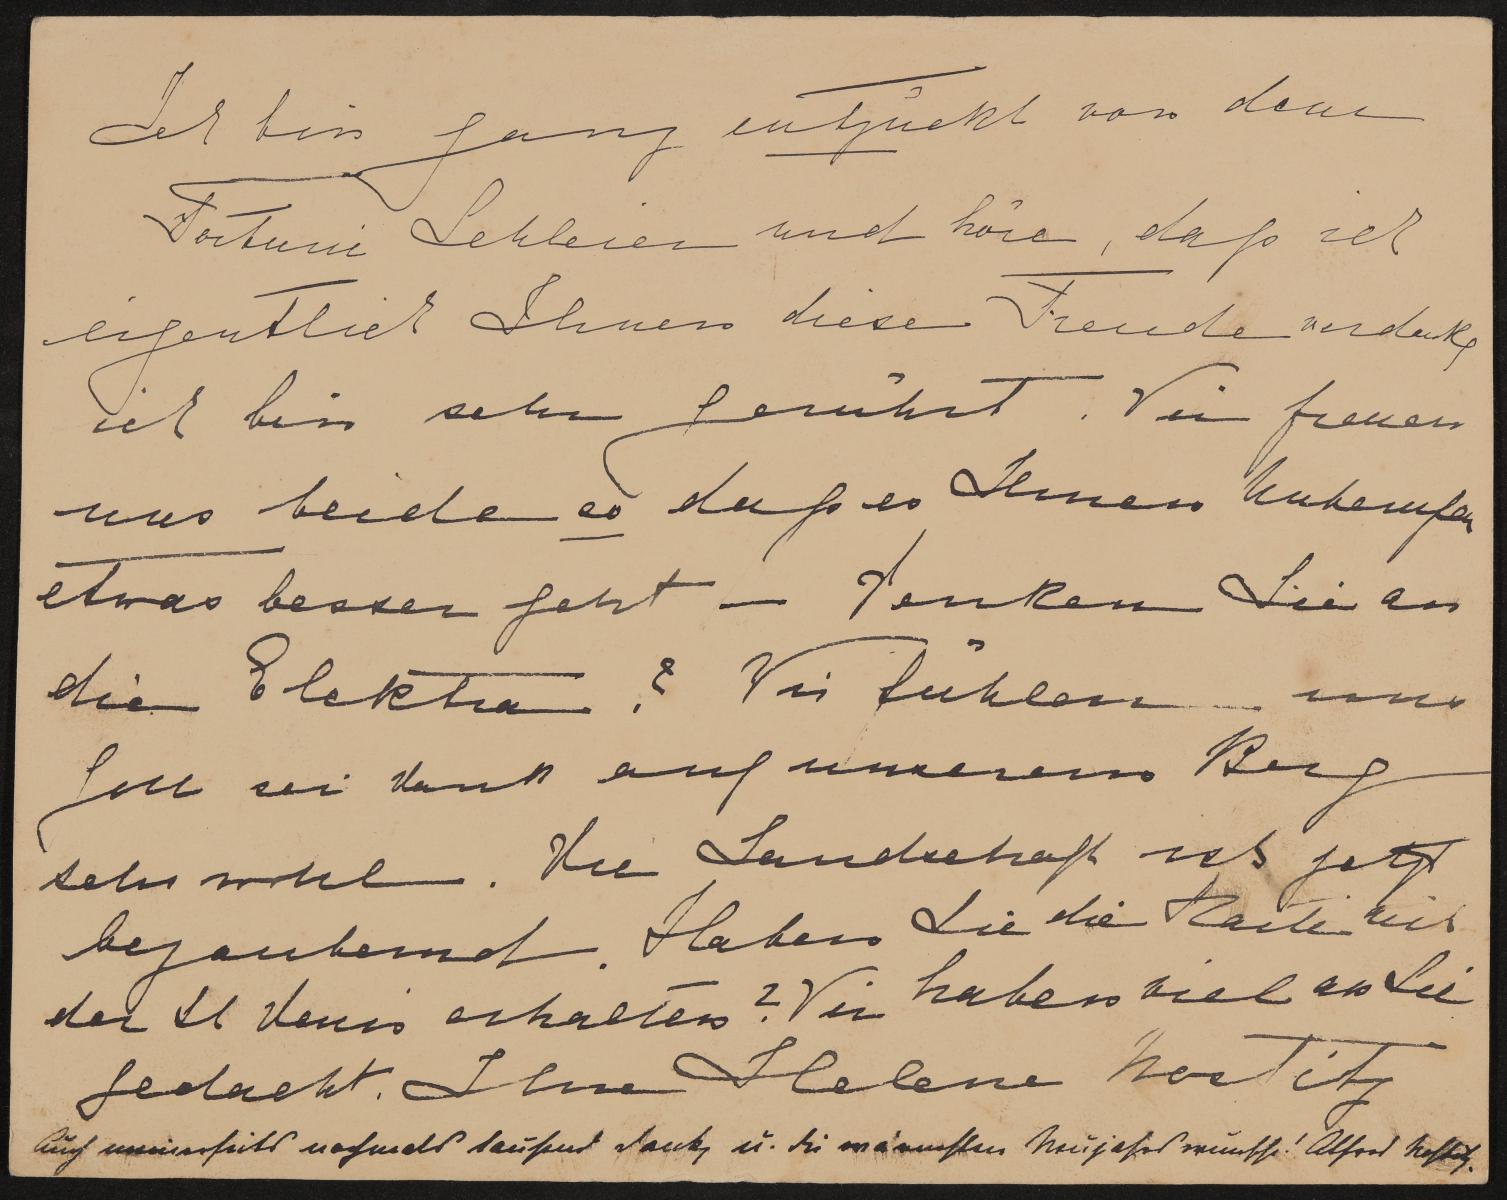 Ich bin ganz entzückt von dem
Fortuni Schleier und höre, daß ich
eigentlich Ihnen diese Freude verdanke
ich bin sehr gerührt. Wir freuen
uns beide so daß es Ihnen Unberufen
etwas besser geht – Denken Sie an
die Elektra? Wir fühlen uns
Gott sei Dank auf unserem Berg
sehr wohl. Die Landschaft ist jetzt
bezaubernd. Haben Sie die Karte mit
der St Denis erhalten? Wir haben viel an Sie
gedacht. Ihre Helene Nostitz
Auch meinerseits nochmals tausend Dank u. die wärmsten Neujahrswünsche! Alfred Nostitz.